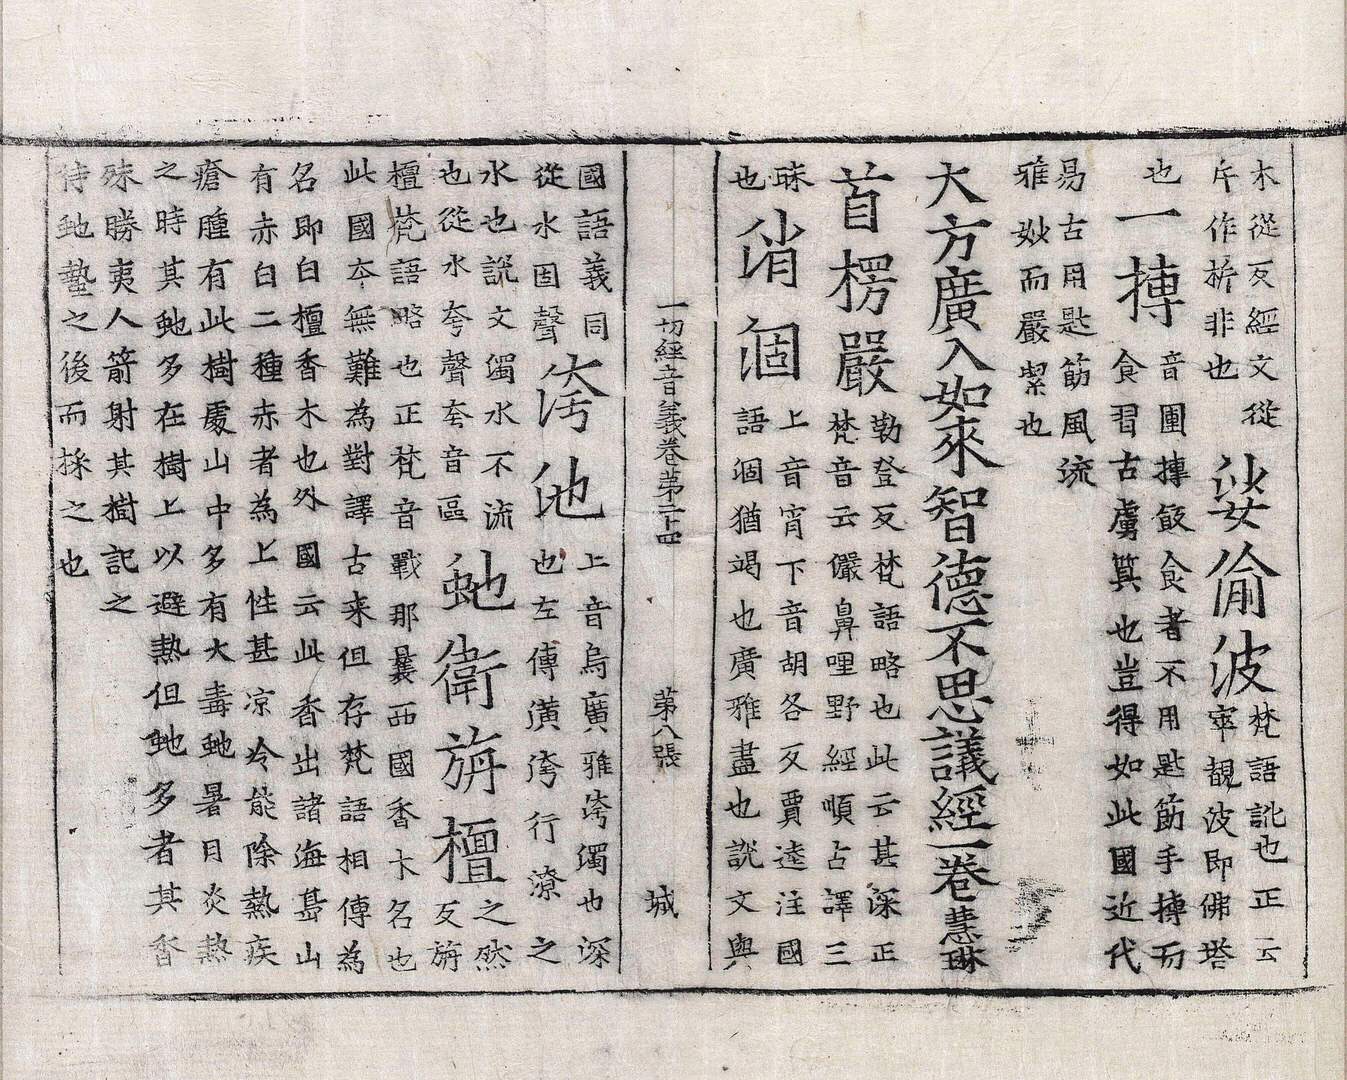 木從反經文從
斥作㭊非也
窣偷波
梵語訛也正云
窣覩波即佛塔
也
一摶
音團摶飯食者不用匙筯手摶而
食習古虜莫也豈得如此國近代
易古用匙筯風流
雅妙而嚴潔也
大方廣入如來智德不思議經一卷慧琳
首楞嚴
勒登反梵語略也此云甚深正
梵音云儼鼻哩野經順占譯三
昧
也
消涸
上音宵下音胡各反賈逵注國
語涸猶竭也廣雅盡也說文與
國語義同
從水固聲
洿池
上音烏廣雅洿濁也深
也左傳潢洿行潦之
水也說文濁水不流
也從水夸聲夸音區
虵衛旃檀
之然
反旃
檀梵語略也正梵音戰那曩西國香木名也
此國本無難為對譯古来但存梵語相傳為
名即白檀香木也外國云此香出諸海㠀山
有赤白二種赤者為上性甚凉冷能除熱疾
瘡腫有此樹處山中多有大毒虵暑月炎熱
之時其虵多在樹上以避熱但虵多者其香
殊勝夷人箭射其樹記之
待虵蟄之後而採之也
一切經音義卷第二十四
第八張
城